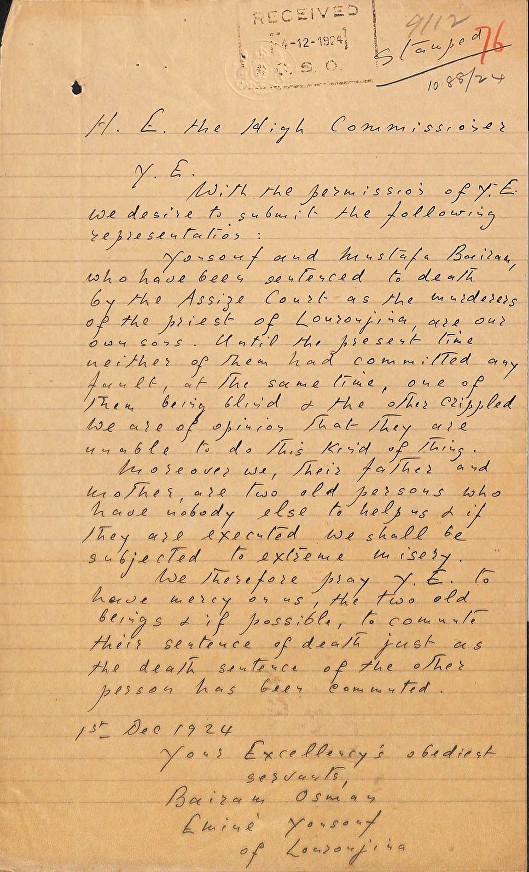 RECEIVED
4-12-1924
C. S. O.
9/12
Stamped
76
1088/24
H. E. the High Commissioner
Y. E.
With the permission of Y. E.
we desire to submit the following
representation:
Yousouf and Mustafa Bairam,
who have been sentenced to death
by the Assize Court as the murderers
of the priest of Louroujina, are our
own sons. Until the present time
neither of them had committed any
fault, at the same time, one of
them being blind & the other crippled
we are of opinion that they are
unable to do this kind of thing.
Moreover we, their father and
mother, are two old persons who
have nobody else to help us & if
they are executed we shall be
subjected to extreme misery.
We therefore pray Y. E. to
have mercy on us, the two old
beings & if possible, to commute
their sentence of death just as
the death sentence of the other
person has been commuted.
1st Dec 1924
Your Excellency's obedient
servants,
Bairam Osman
Eminé Yousouf
of Louroujina